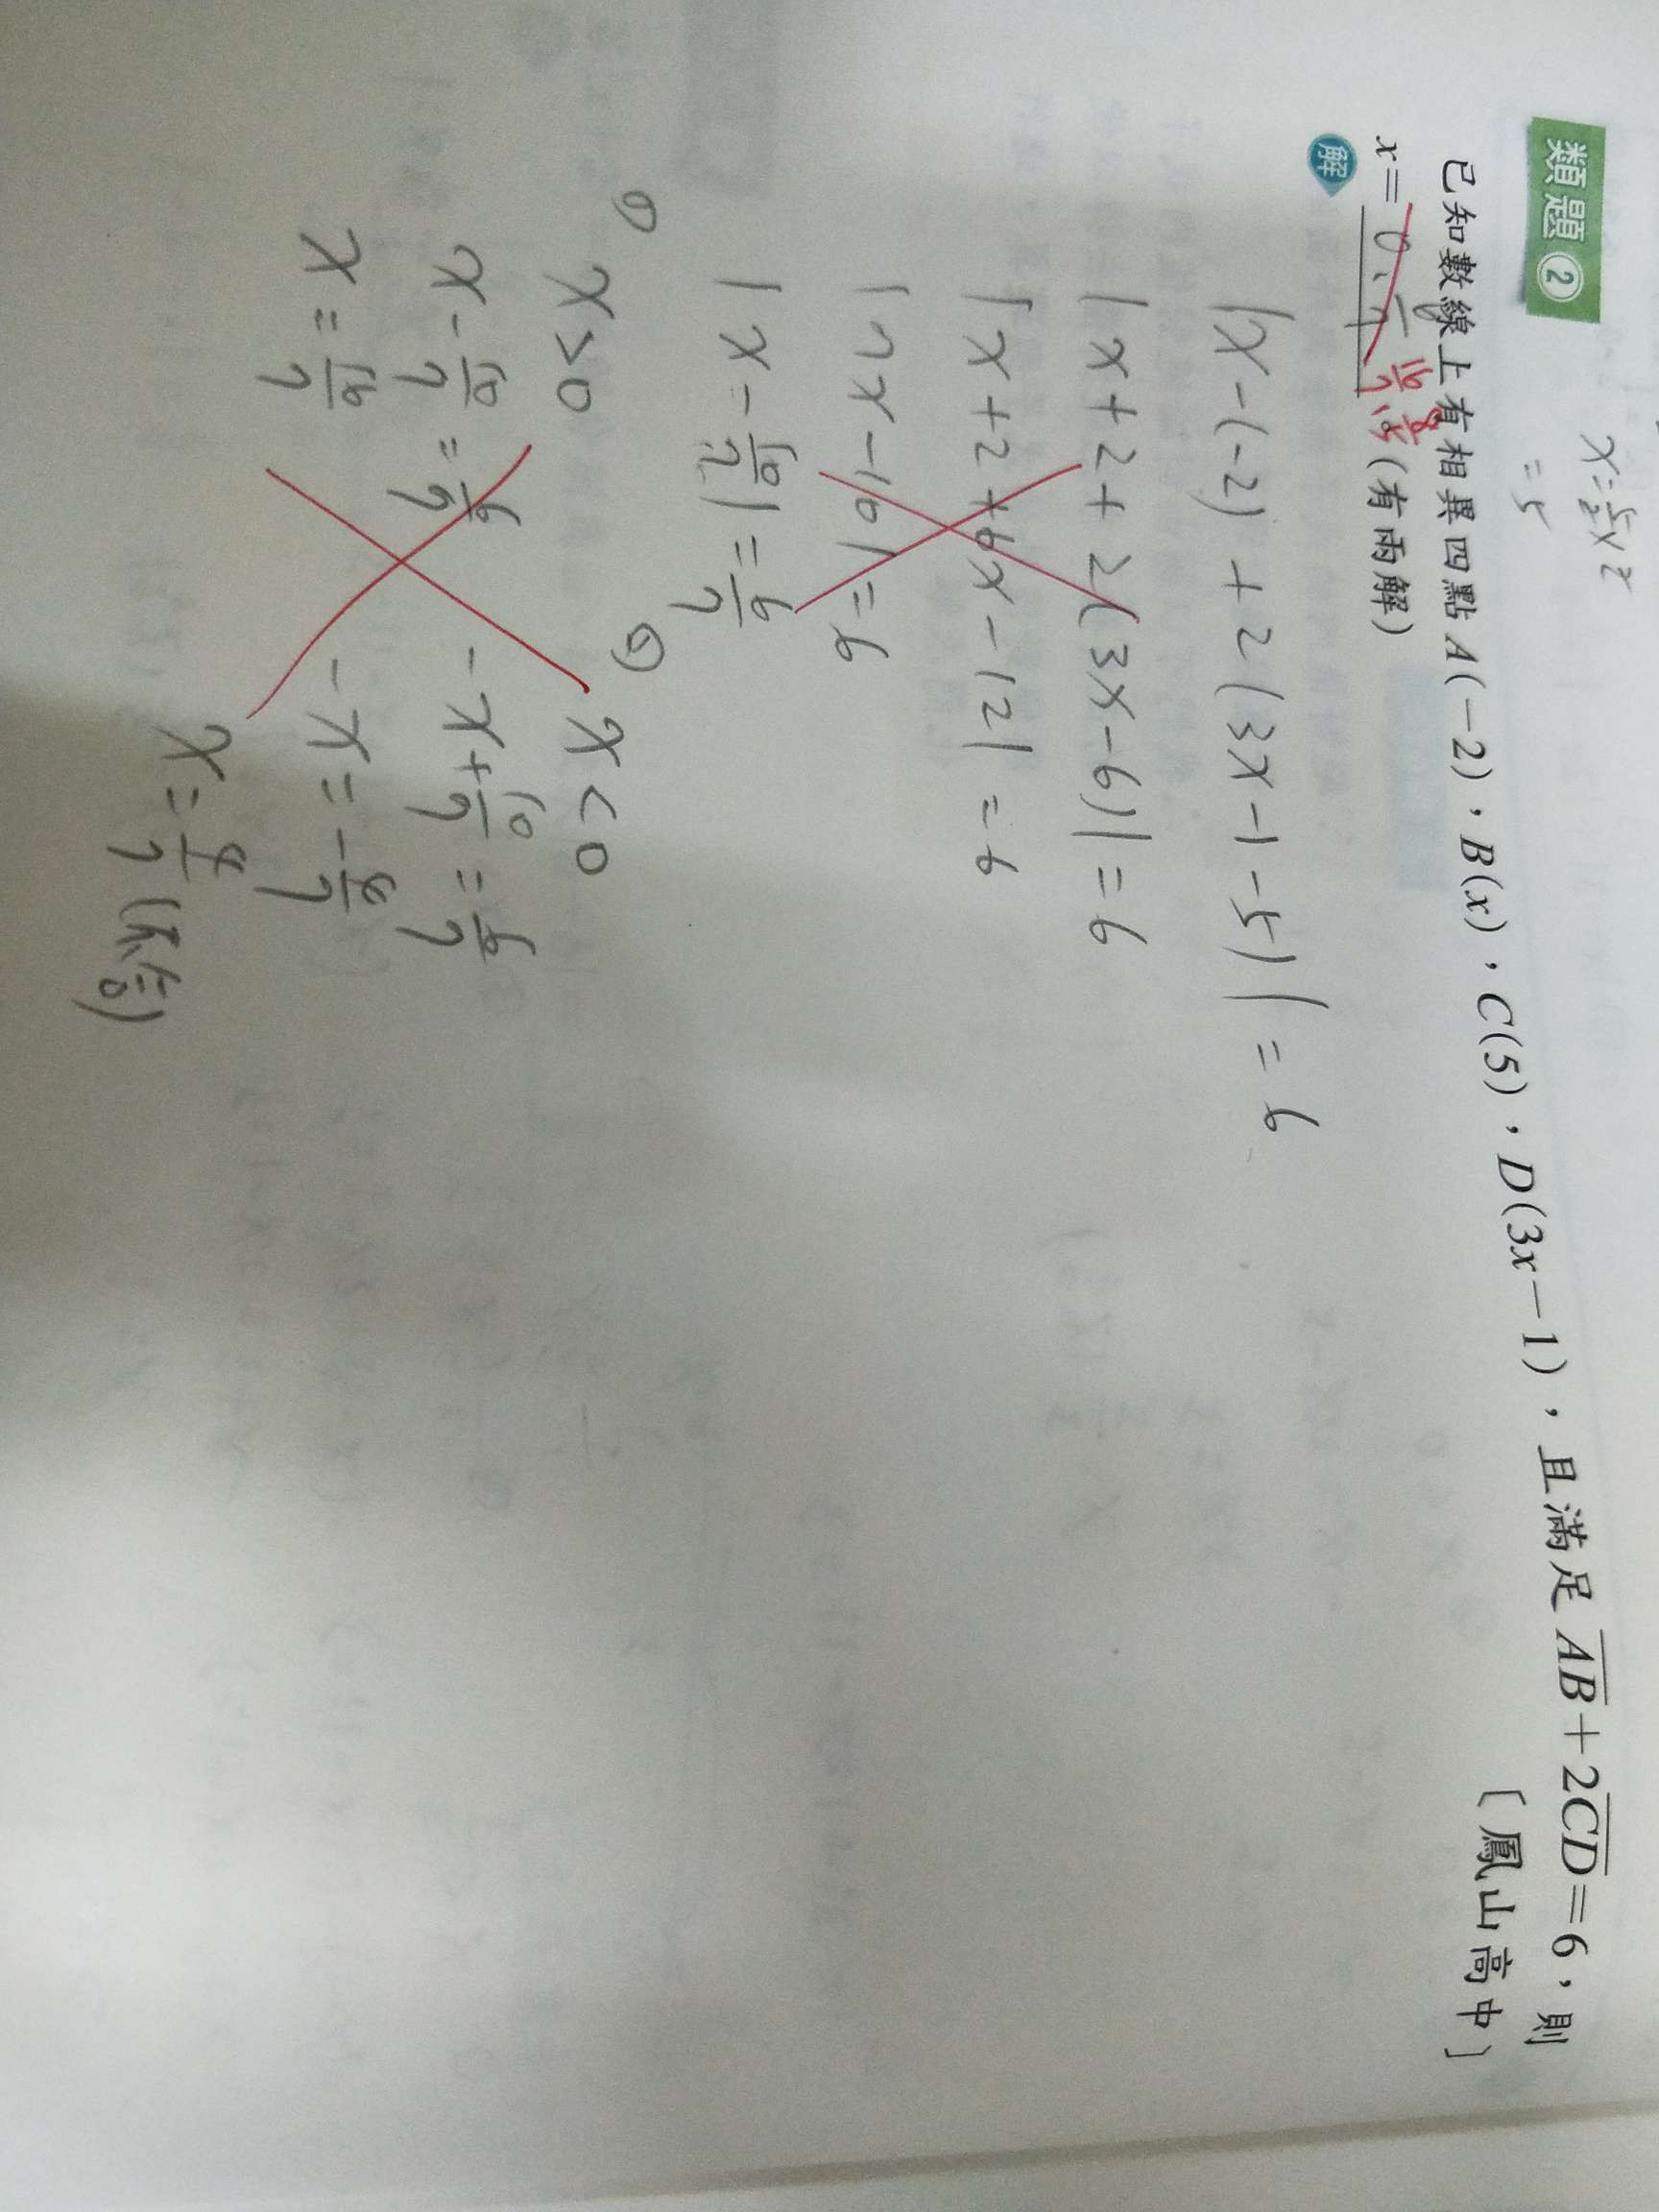 x=5/2×2
=5
類題②
已知數線上有相異四點 A(-2)，B(x)，C(5)，D(3x-1)，且滿足 AB+2CD=6，則
x= 16/7、8/5 (有兩解)
〔鳳山高中〕
解
|x-(-2)+2(3x-1-5)|=6
|x+2+2(3x-6)|=6
|x+2+6x-12|=6
|7x-10|=6
|x-10/7|=6/7
① x>0
x-10/7=6/7
x=16/7
② x<0
-x+10/7=6/7
-x=-
x=4/7 (不合)